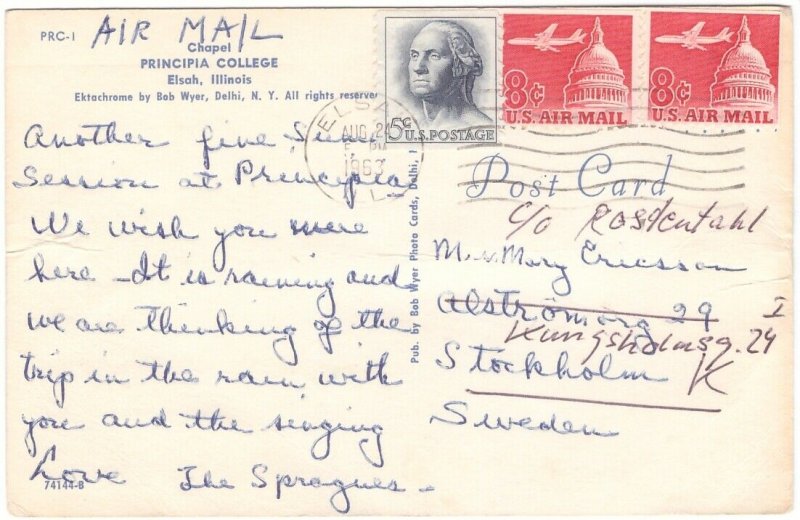 PRC-1
AIR MAIL
Chapel
PRINCIPIA COLLEGE
Elsah, Illinois
Ektachrome by Bob Wyer, Delhi, N. Y. All rights reserve
5¢
U.S. POSTAGE
8¢
U.S. AIR MAIL
8¢
U.S. AIR MAIL
ELSA
AUG 2
PM
1963
Another fine Sum
Session at Principia
We wish you were
here - It is raining and
we are thinking of the
trip in the rain with
you and the singing
Love The Spragues -
74144-B
Pub. by Bob Wyer Photo Cards, Delhi,
Post Card
c/o
M. v. Mary Ericsson
29 I
Kungsholmsg. 24
Stockholm K
Sweden